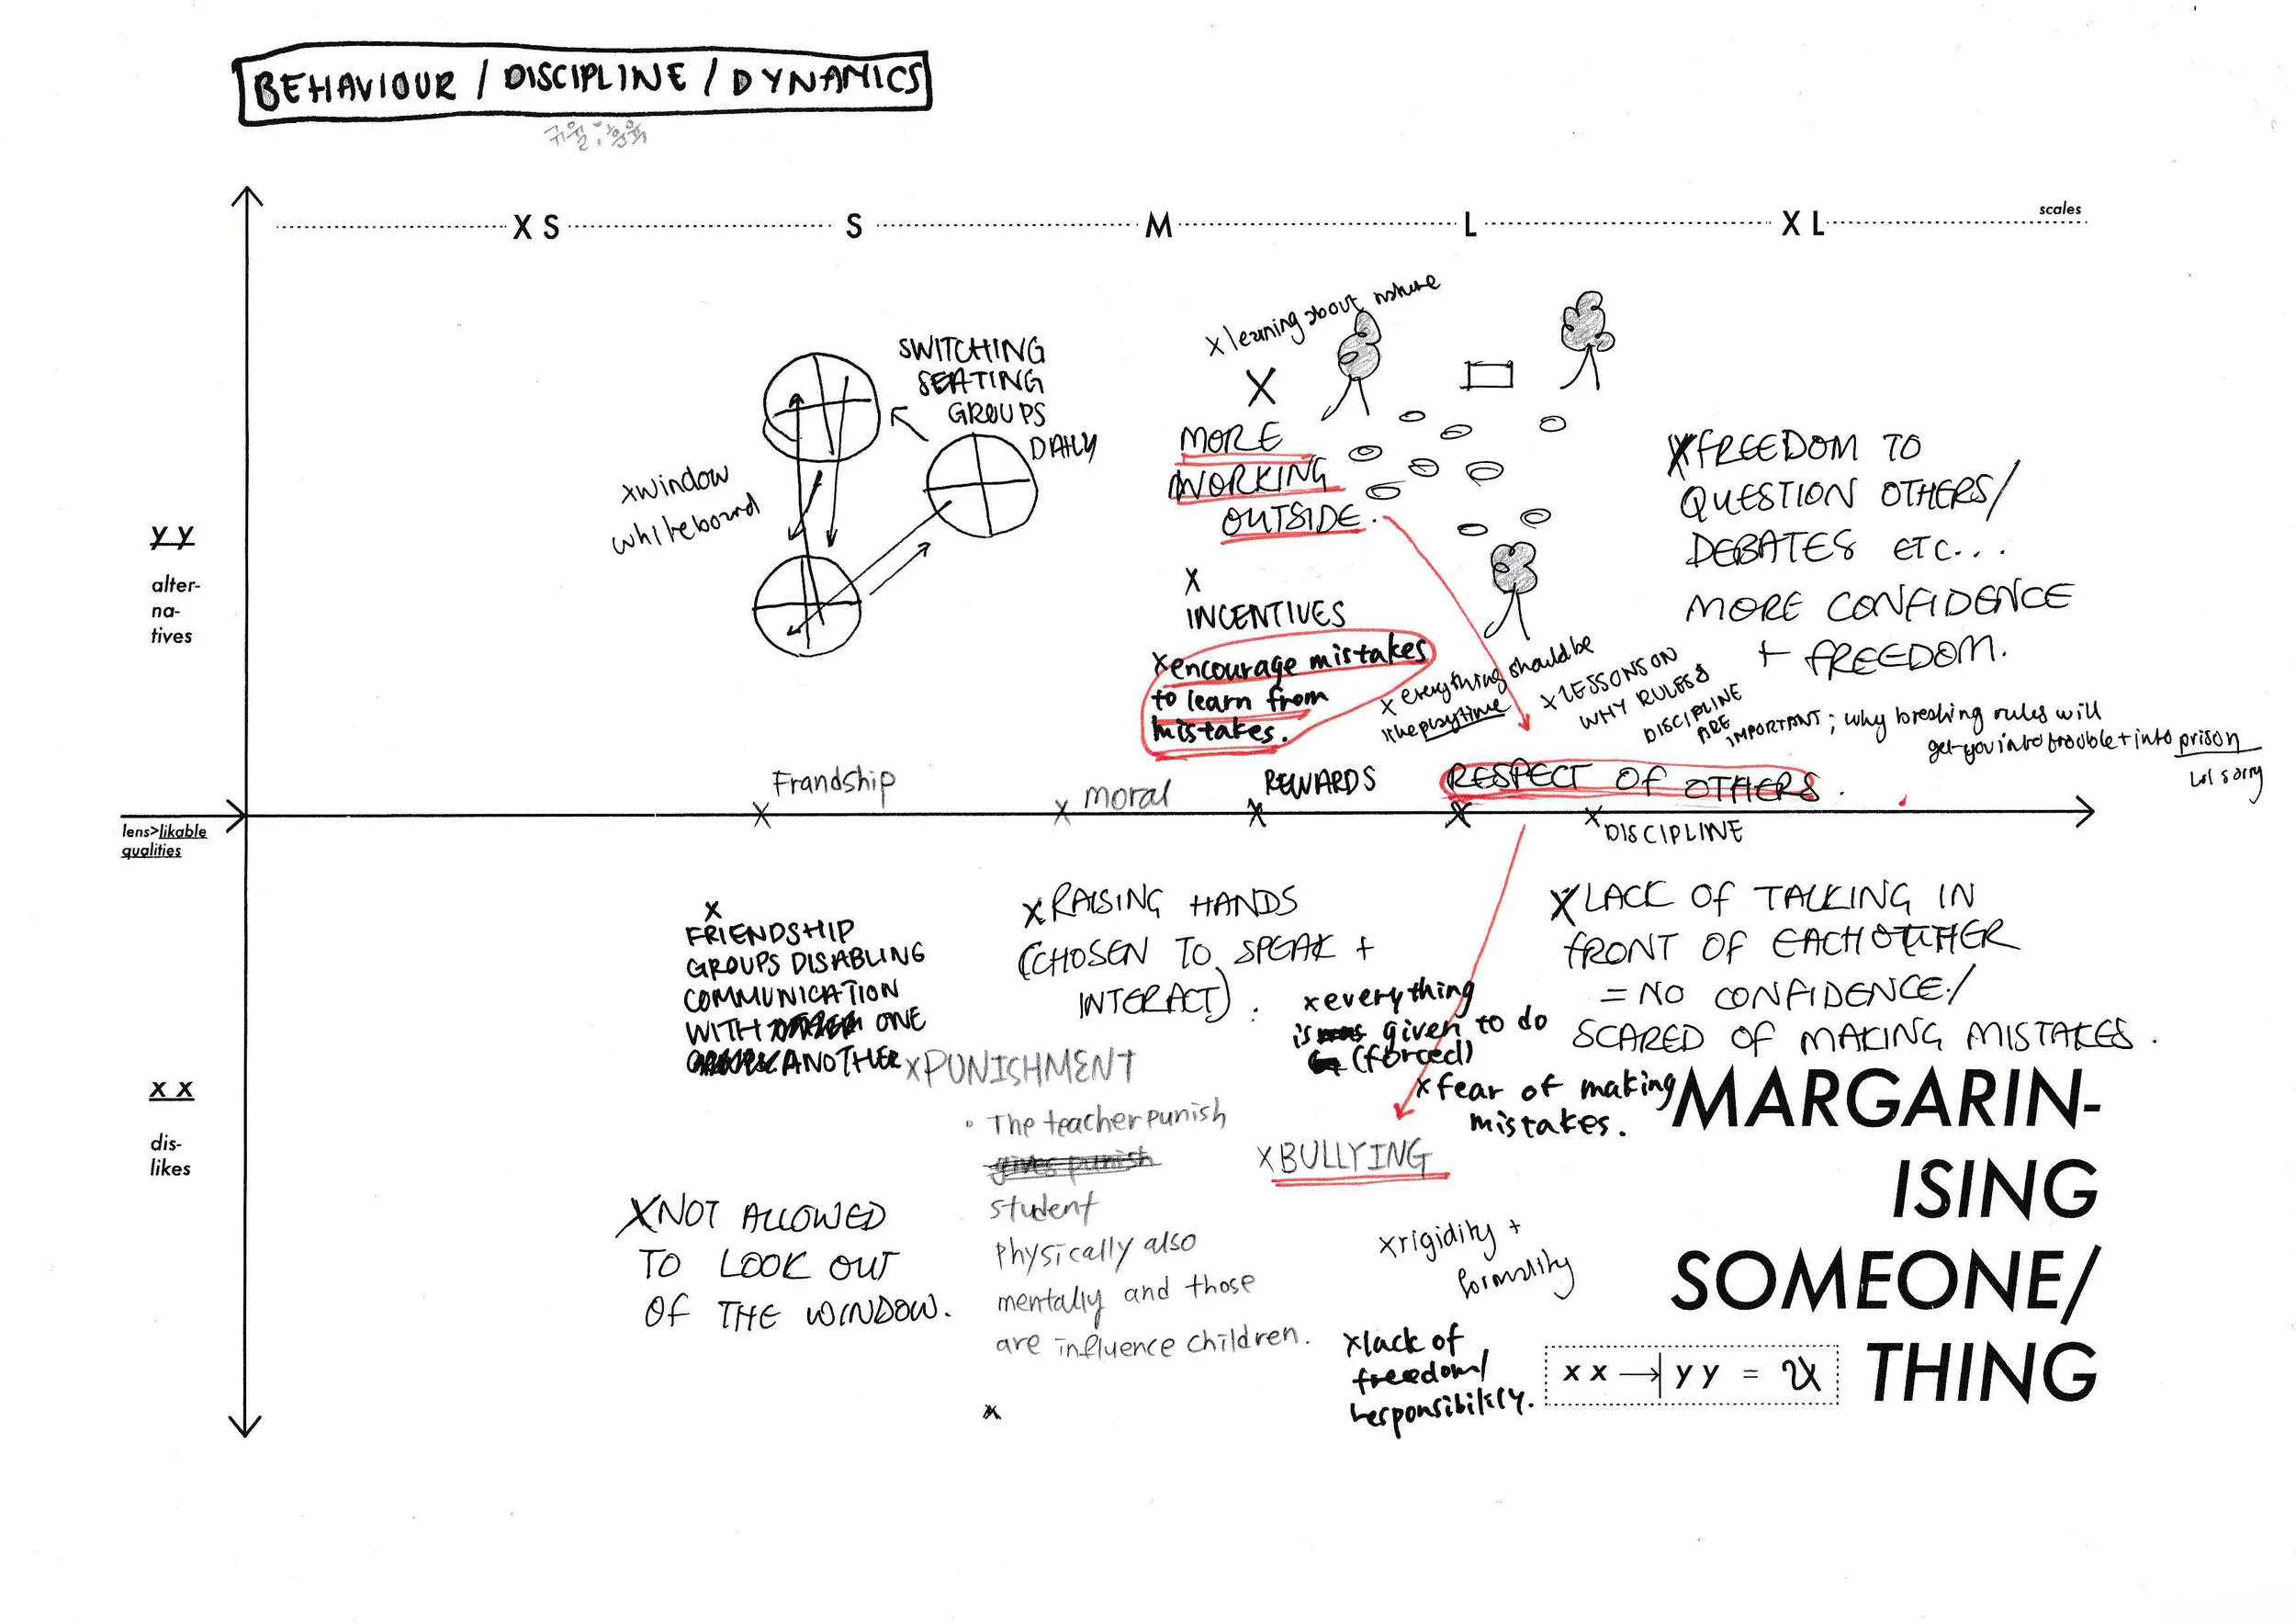 BEHAVIOUR / DISCIPLINE / DYNAMICS
규율;훈육
X S
S
M
L
X L
scales
y y
alter-
na-
tives
SWITCHING
SEATING
GROUPS
DAILY
x window
whiteboard
x learning about nature
X
MORE
WORKING
OUTSIDE.
X
INCENTIVES
x encourage mistakes
to learn from
mistakes.
x everything should be
like playtime
x LESSONS ON
WHY RULES &
DISCIPLINE
ARE
IMPORTANT; why breaking rules will
get you into trouble + into prison
lol sorry
X FREEDOM TO
QUESTION OTHERS/
DEBATES ETC...
MORE CONFIDENCE
+ FREEDOM.
lens>likable
qualities
Frandship
x
moral
x
REWARDS
x
RESPECT OF OTHERS.
x
x DISCIPLINE
x x
dis-
likes
x
FRIENDSHIP
GROUPS DISABLING
COMMUNICATION
WITH ONE
ANOTHER
X NOT ALLOWED
TO LOOK OUT
OF THE WINDOW.
x RAISING HANDS
(CHOSEN TO SPEAK +
INTERACT).
x PUNISHMENT
• The teacher punish
gives punish
student
physically also
mentally and those
are influence children.
x
x everything
is was given to do
(forced)
x fear of making
mistakes.
x BULLYING
x rigidity +
formality
x lack of
freedom/
responsibility.
X LACK OF TALKING IN
FRONT OF EACHOTHER
= NO CONFIDENCE/
SCARED OF MAKING MISTAKES.
MARGARIN-
ISING
SOMEONE/
THING
x x → y y =